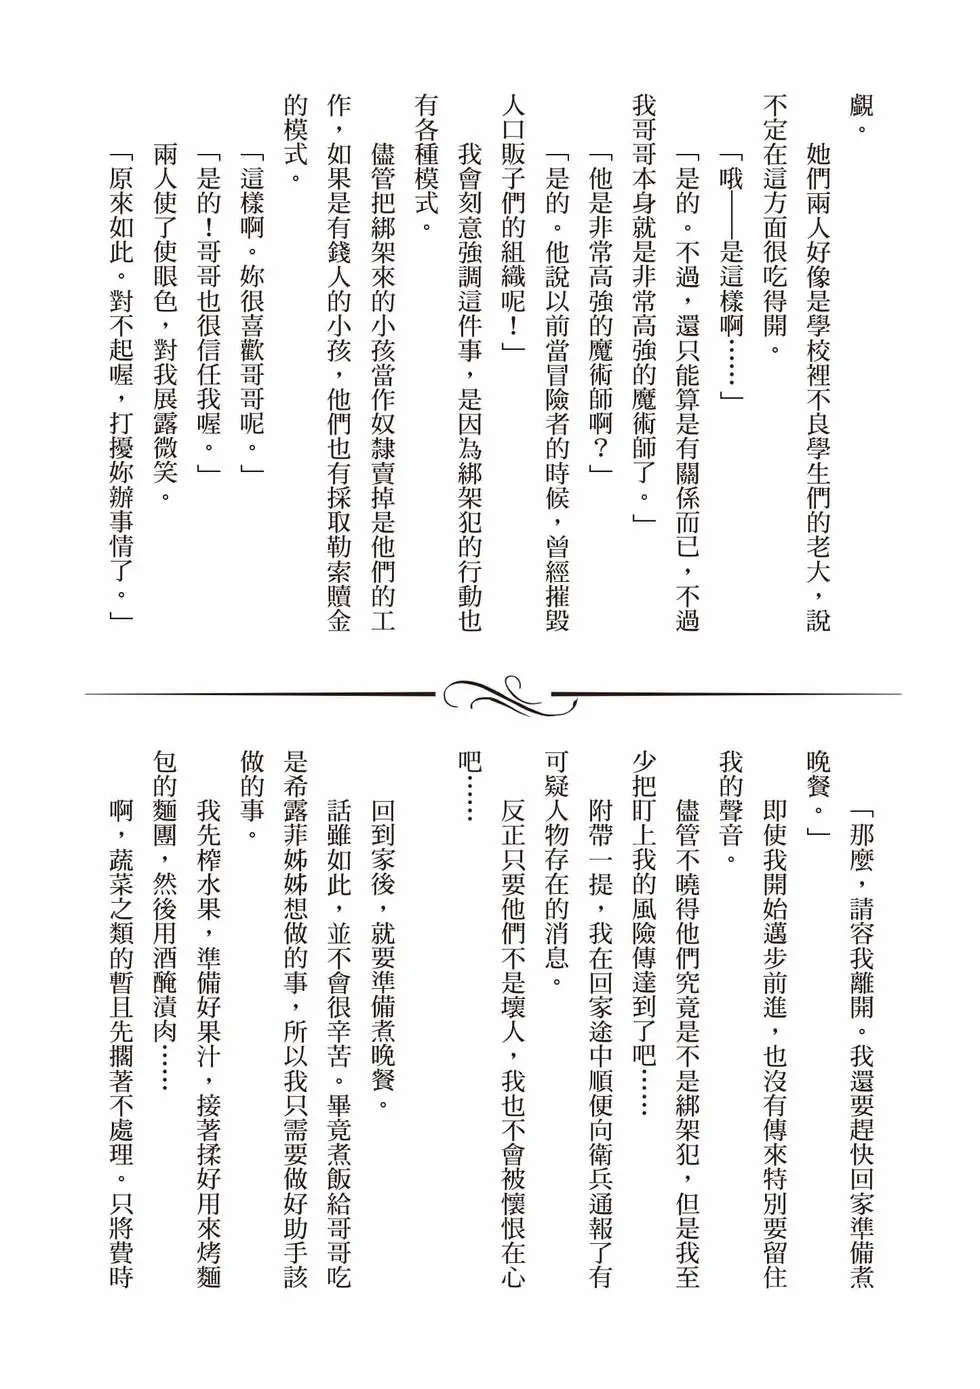 覷。
她們兩人好像是學校裡不良學生們的老大，說
不定在這方面很吃得開。
「哦——是這樣啊……」
「是的。不過，還只能算是有關係而已，不過
我哥哥本身就是非常高強的魔術師了。」
「他是非常高強的魔術師啊？」
「是的。他說以前當冒險者的時候，曾經摧毀
人口販子們的組織呢！」
我會刻意強調這件事，是因為綁架犯的行動也
有各種模式。
儘管把綁架來的小孩當作奴隸賣掉是他們的工
作，如果是有錢人的小孩，他們也有採取勒索贖金
的模式。
「這樣啊。妳很喜歡哥哥呢。」
「是的！哥哥也很信任我喔。」
兩人使了使眼色，對我展露微笑。
「原來如此。對不起喔，打擾妳辦事情了。」
「那麼，請容我離開。我還要趕快回家準備煮
晚餐。」
即使我開始邁步前進，也沒有傳來特別要留住
我的聲音。
儘管不曉得他們究竟是不是綁架犯，但是我至
少把盯上我的風險傳達到了吧……
附帶一提，我在回家途中順便向衛兵通報了有
可疑人物存在的消息。
反正只要他們不是壞人，我也不會被懷恨在心
吧……
回到家後，就要準備煮晚餐。
話雖如此，並不會很辛苦。畢竟煮飯給哥哥吃
是希露菲姊姊想做的事，所以我只需要做好助手該
做的事。
我先榨水果，準備好果汁，接著揉好用來烤麵
包的麵團，然後用酒醃漬肉……
啊，蔬菜之類的暫且先擱著不處理。只將費時